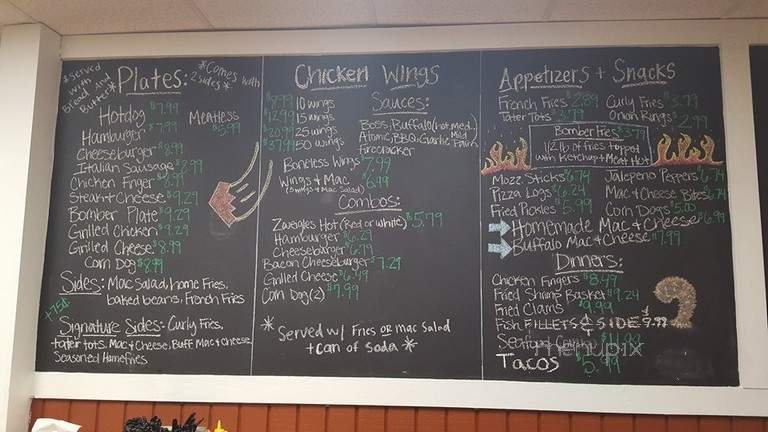 *Served with Bread and Butter*
Plates:
*Comes with 2 sides*
Hotdog $7.99
Meatless $5.99
Hamburger $7.99
Cheeseburger $8.99
Italian Sausage $8.99
Chicken Finger $8.99
Steak+Cheese $9.29
Bomber Plate $9.29
Grilled Chicken $9.29
Grilled Cheese $8.99
Corn Dog $8.99
Sides: Mac Salad, home Fries,
baked beans, French Fries
+75¢
Signature Sides: Curly Fries,
tater tots, Mac+Cheese, Buff Mac+cheese
Seasoned Homefries
Chicken Wings
$8.99 10 wings
$12.99 15 wings
$20.99 25 wings
$37.99 50 wings
Sauces:
Boss, Buffalo (hot, med., Mild
Atomic, BBQ, Garlic Parm
firecracker
Boneless Wings $7.99
Wings + Mac $6.99
(5 wings + Mac Salad)
Combos:
Zweigles Hot (Red or white) $5.79
Hamburger $6.29
Cheeseburger $6.79
Bacon Cheeseburger $7.29
Grilled Cheese $6.49
Corn Dog (2) $7.99
* Served w/ Fries or mac salad
+ can of soda *
Appetizers + Snacks
French Fries $2.89 Curly Fries $3.79
Tater Tots $3.79 Onion Rings $2.99
Bomber Fries $3.79
1/2 lb of fries topped
with Ketchup + Meat Hot
Mozz Sticks $6.74 Jalapeno Peppers $6.74
Pizza Logs $6.24 Mac+Cheese Bites $6.74
Fried Pickles $5.99 Corn Dogs
Homemade Mac + Cheese $6.99
Buffalo Mac+Cheese $7.99
Dinners:
Chicken Fingers $8.49
Fried Shrimp Basket $9.24
Fried Clams $9.99
Fish FILLETS & SIDE 9.99
Seafood
Tacos $5.99
menupix